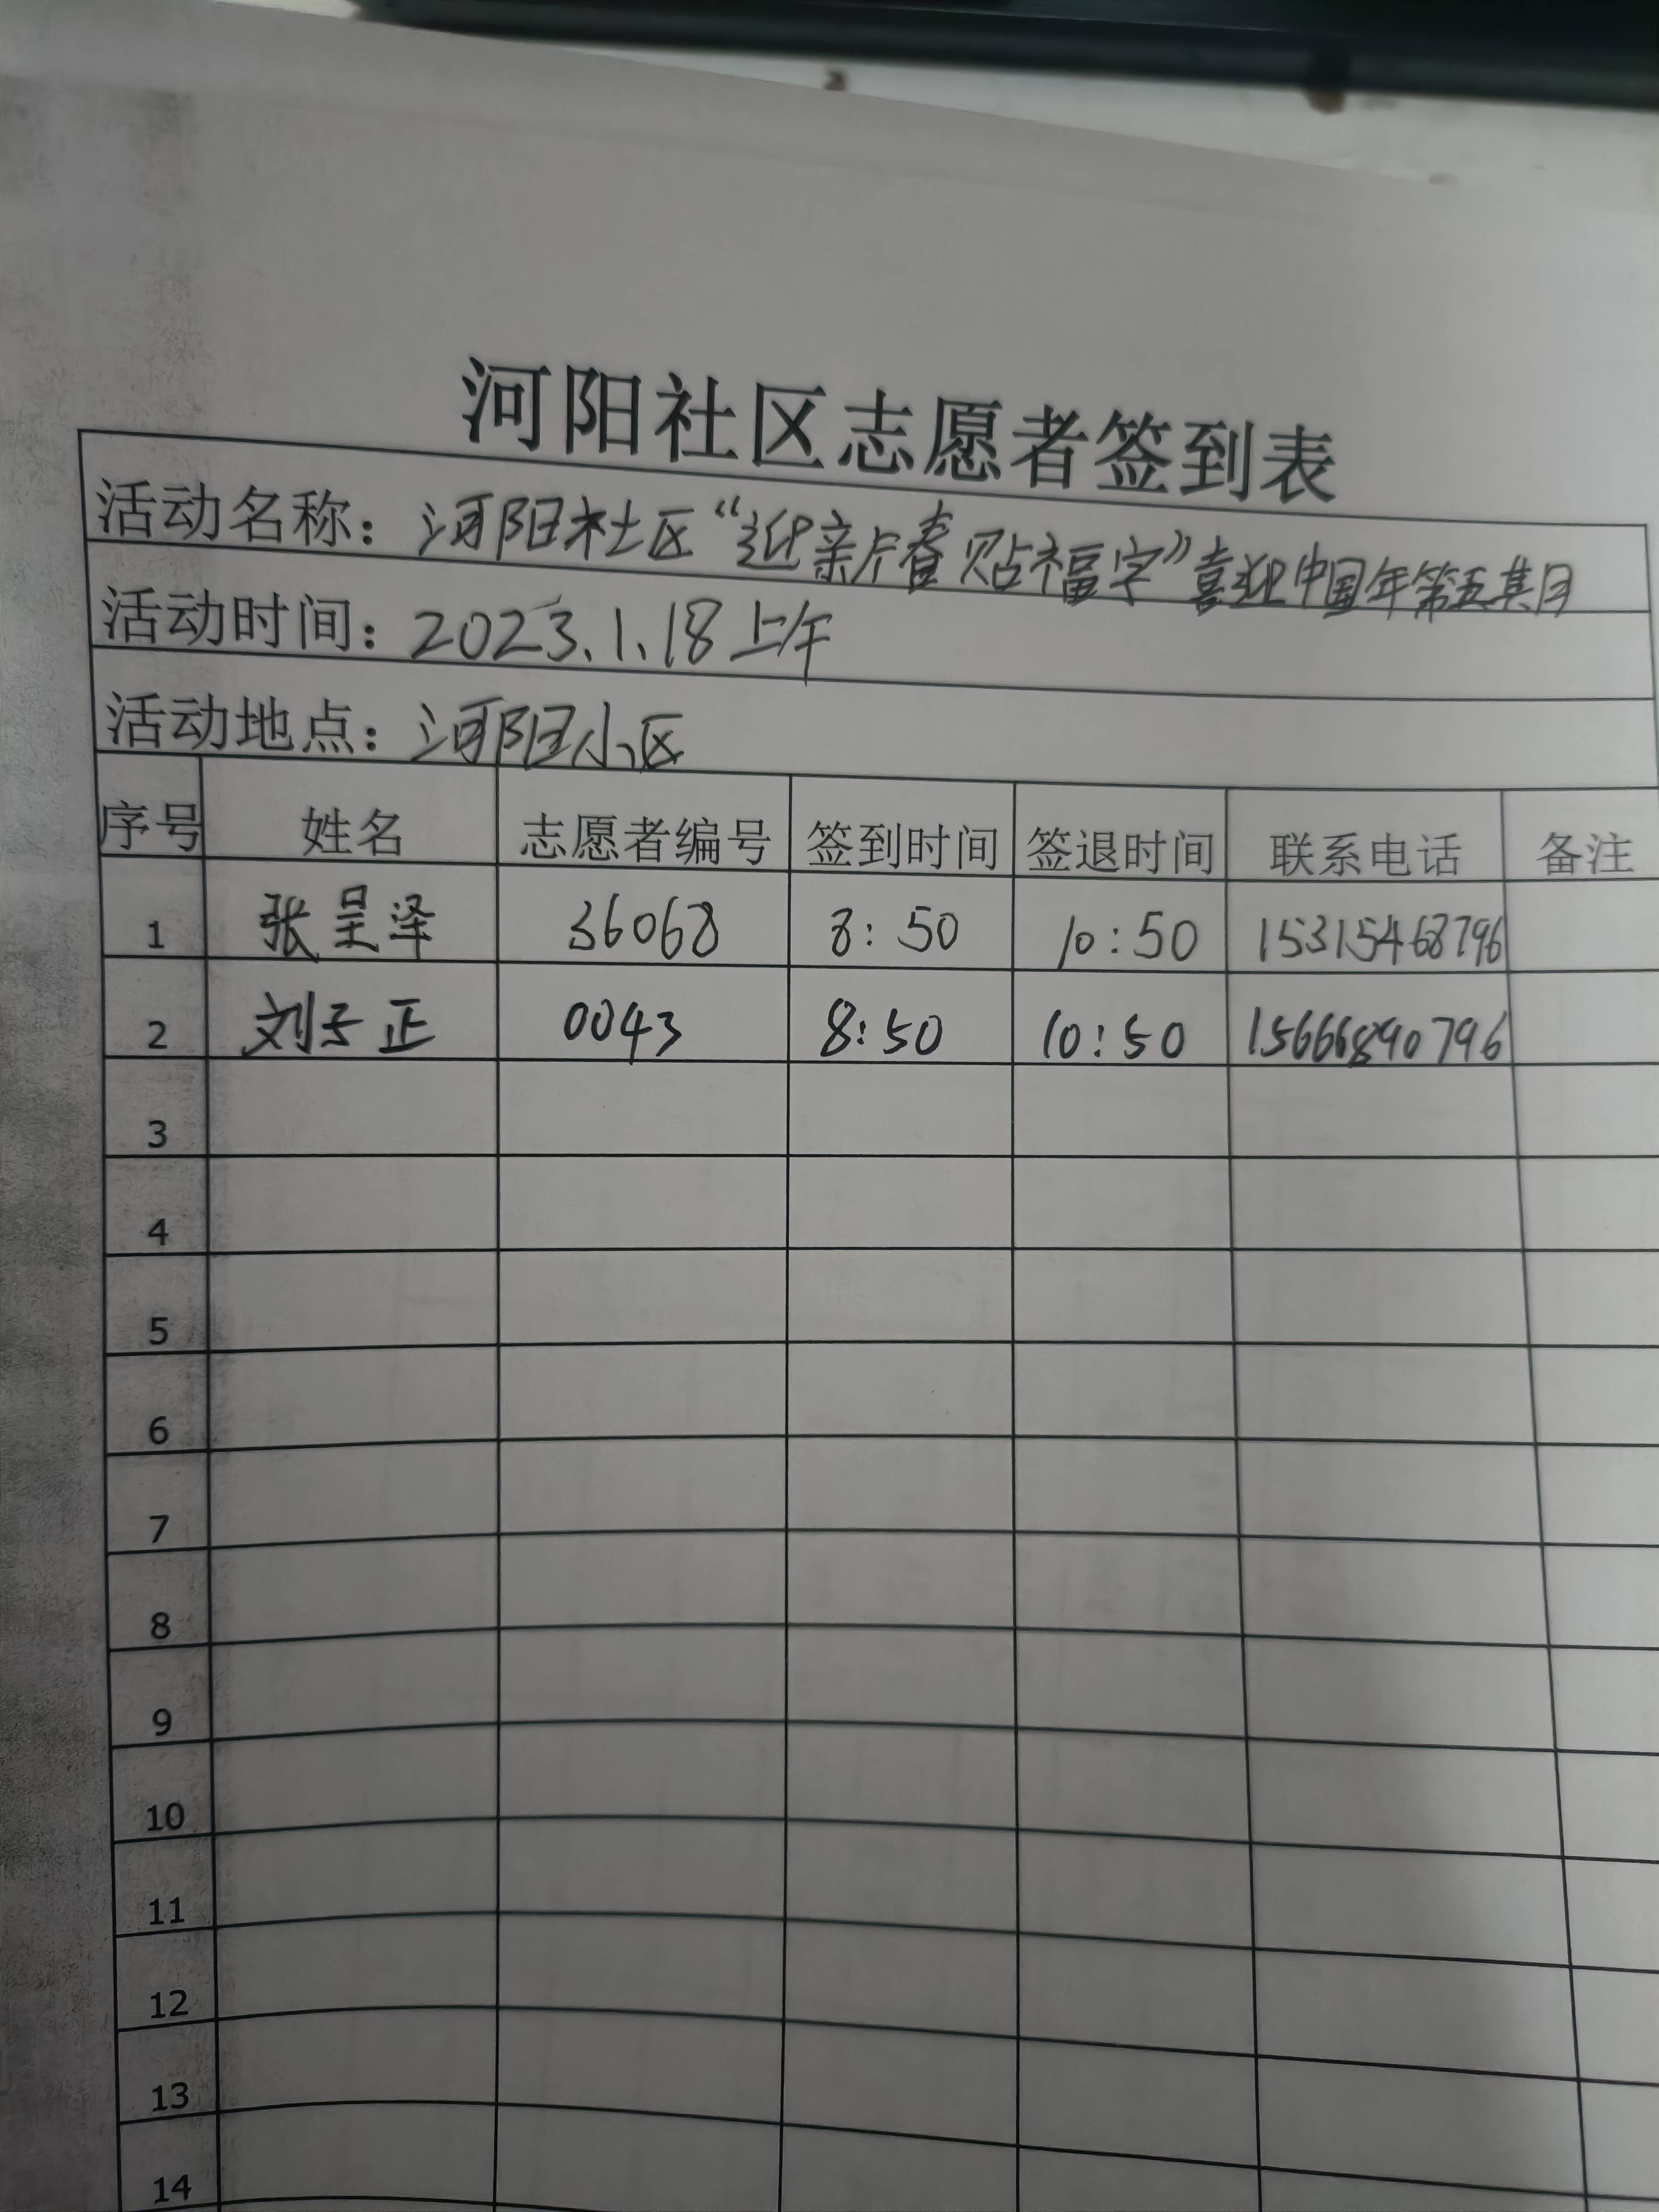 河阳社区志愿者签到表
活动名称：河阳社区“迎新春 贴福字”喜迎中国年第五期
活动时间：2023.1.18上午
活动地点：河阳小区
序号 姓名 志愿者编号 签到时间 签退时间 联系电话 备注
1 张呈泽 36068 8:50 10:50 15315468796
2 刘子正 0043 8:50 10:50 15666890796
3
4
5
6
7
8
9
10
11
12
13
14